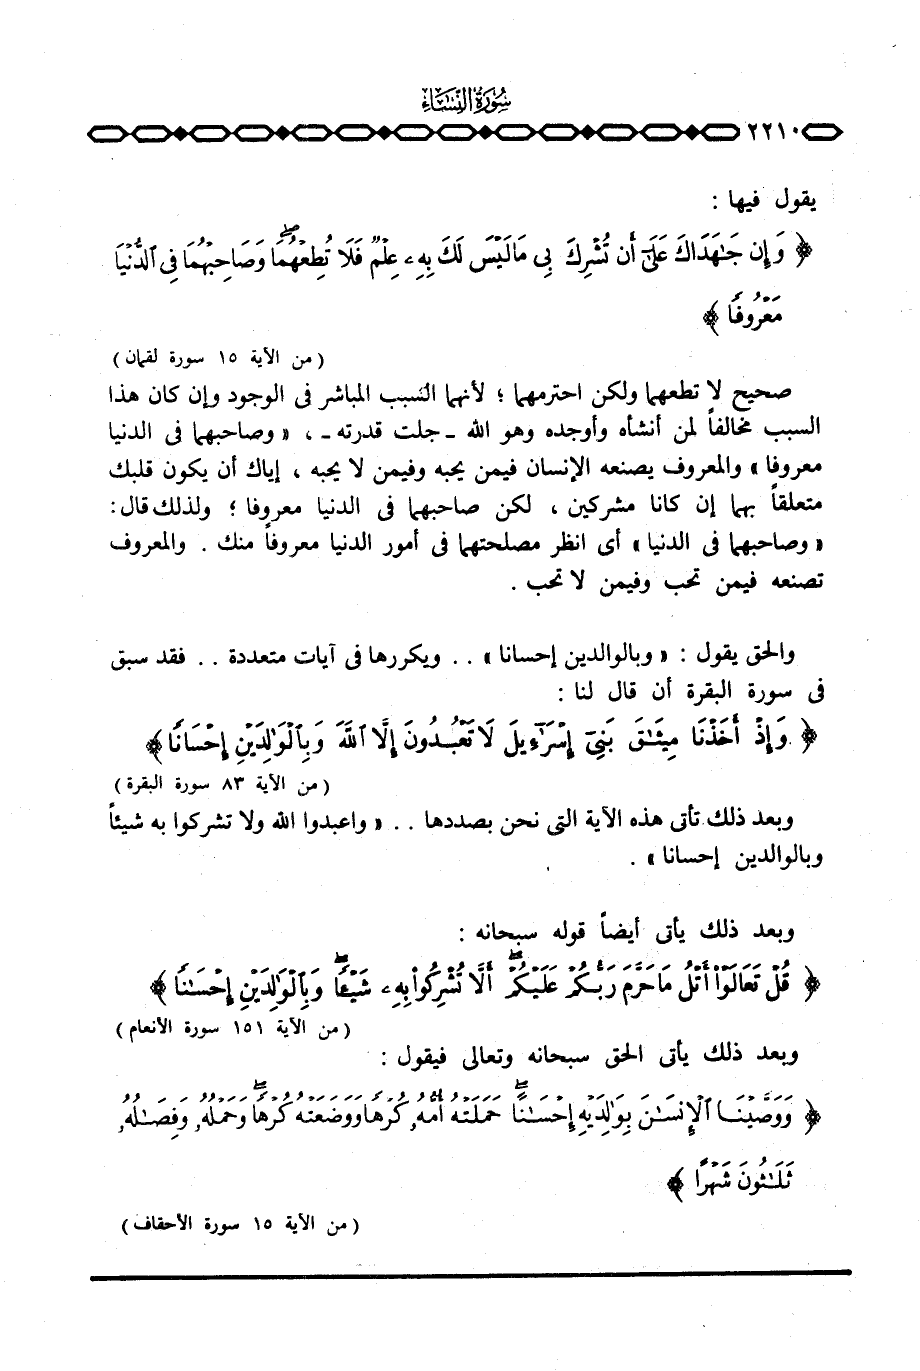 سُورَةُ النِّسَاءِ
٢٢١٠
يقول فيها :
﴿ وَإِن جَٰهَدَاكَ عَلَىٰٓ أَن تُشْرِكَ بِى مَا لَيْسَ لَكَ بِهِۦ عِلْمٌ فَلَا تُطِعْهُمَاۖ وَصَاحِبْهُمَا فِى ٱلدُّنْيَا
مَعْرُوفًا ﴾
( من الآية ١٥ سورة لقمان )
صحيح لا تطعهما ولكن احترمهما ؛ لأنهما السبب المباشر فى الوجود وإن كان هذا
السبب مخالفاً لمن أنشأه وأوجده وهو الله ـ جلت قدرته ـ ، « وصاحبهما فى الدنيا
معروفا » والمعروف يصنعه الإنسان فيمن يحبه وفيمن لا يحبه ، إياك أن يكون قلبك
متعلقاً بهما إن كانا مشركين ، لكن صاحبهما فى الدنيا معروفا ؛ ولذلك قال :
« وصاحبهما فى الدنيا » أى انظر مصلحتهما فى أمور الدنيا معروفاً منك . والمعروف
تصنعه فيمن تحب وفيمن لا تحب .
والحق يقول : « وبالوالدين إحسانا » . . ويكررها فى آيات متعددة . . فقد سبق
فى سورة البقرة أن قال لنا :
﴿ وَإِذْ أَخَذْنَا مِيثَٰقَ بَنِىٓ إِسْرَٰٓءِيلَ لَا تَعْبُدُونَ إِلَّا ٱللَّهَ وَبِٱلْوَٰلِدَيْنِ إِحْسَانًا ﴾
( من الآية ٨٣ سورة البقرة )
وبعد ذلك تأتى هذه الآية التى نحن بصددها . . « واعبدوا الله ولا تشركوا به شيئاً
وبالوالدين إحسانا » .
وبعد ذلك يأتى أيضاً قوله سبحانه :
﴿ قُلْ تَعَالَوْا۟ أَتْلُ مَا حَرَّمَ رَبُّكُمْ عَلَيْكُمْۖ أَلَّا تُشْرِكُوا۟ بِهِۦ شَيْـًٔاۖ وَبِٱلْوَٰلِدَيْنِ إِحْسَٰنًا ﴾
( من الآية ١٥١ سورة الأنعام )
وبعد ذلك يأتى الحق سبحانه وتعالى فيقول :
﴿ وَوَصَّيْنَا ٱلْإِنسَٰنَ بِوَٰلِدَيْهِ إِحْسَٰنًاۖ حَمَلَتْهُ أُمُّهُۥ كُرْهًا وَوَضَعَتْهُ كُرْهًاۖ وَحَمْلُهُۥ وَفِصَٰلُهُۥ
ثَلَٰثُونَ شَهْرًا ﴾
( من الآية ١٥ سورة الأحقاف )